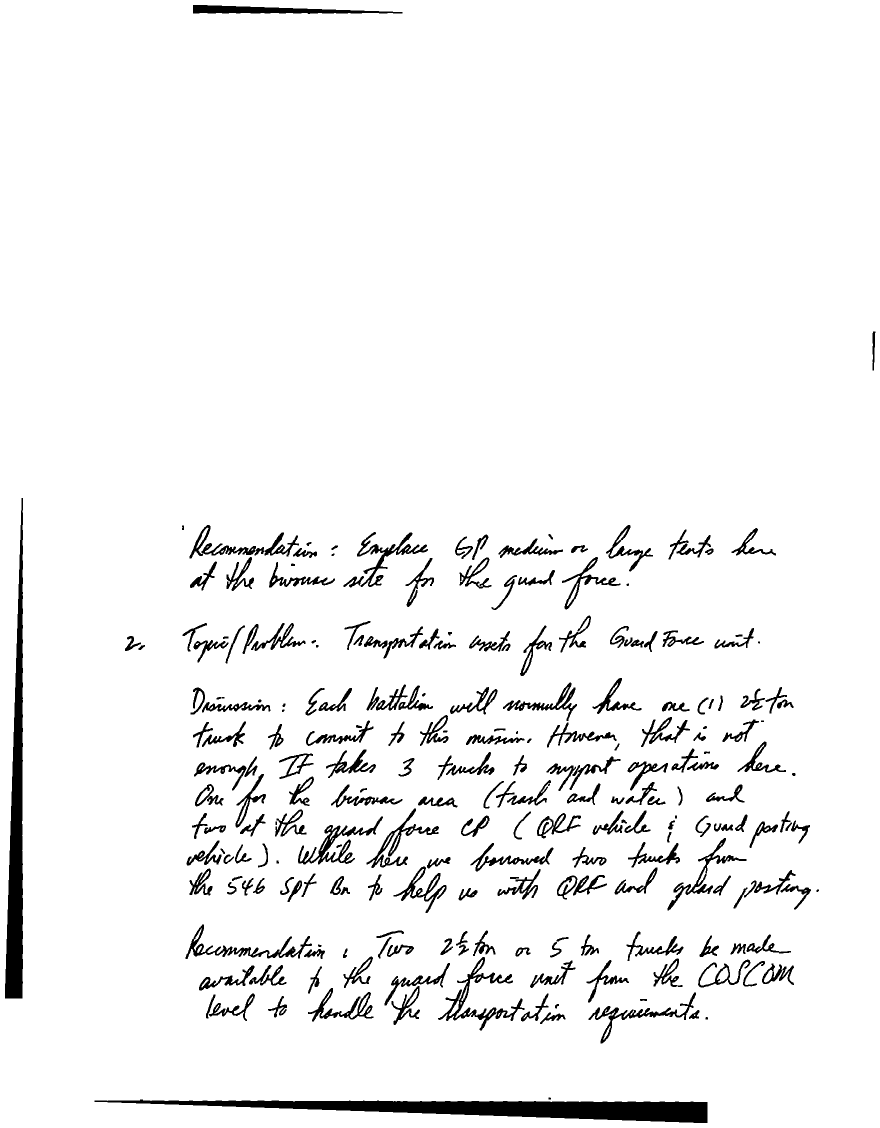 Recommendation: Emplace GP medium or large tents here
at the bivouac site for the guard force.
2. Topic/Problem: Transportation assets for the Guard Force unit.
Discussion: Each battalion will normally have one (1) 2½ ton
truck to commit to this mission. However, that is not
enough. It takes 3 trucks to support operations here.
One for the bivouac area (trash and water) and
two at the guard force CP (QRF vehicle & Guard posting
vehicle). While here we borrowed two trucks from
the 546 Spt Bn to help us with QRF and guard posting.
Recommendation: Two 2½ ton or 5 ton trucks be made
available to the guard force unit from the COSCOM
level to handle the transportation requirements.